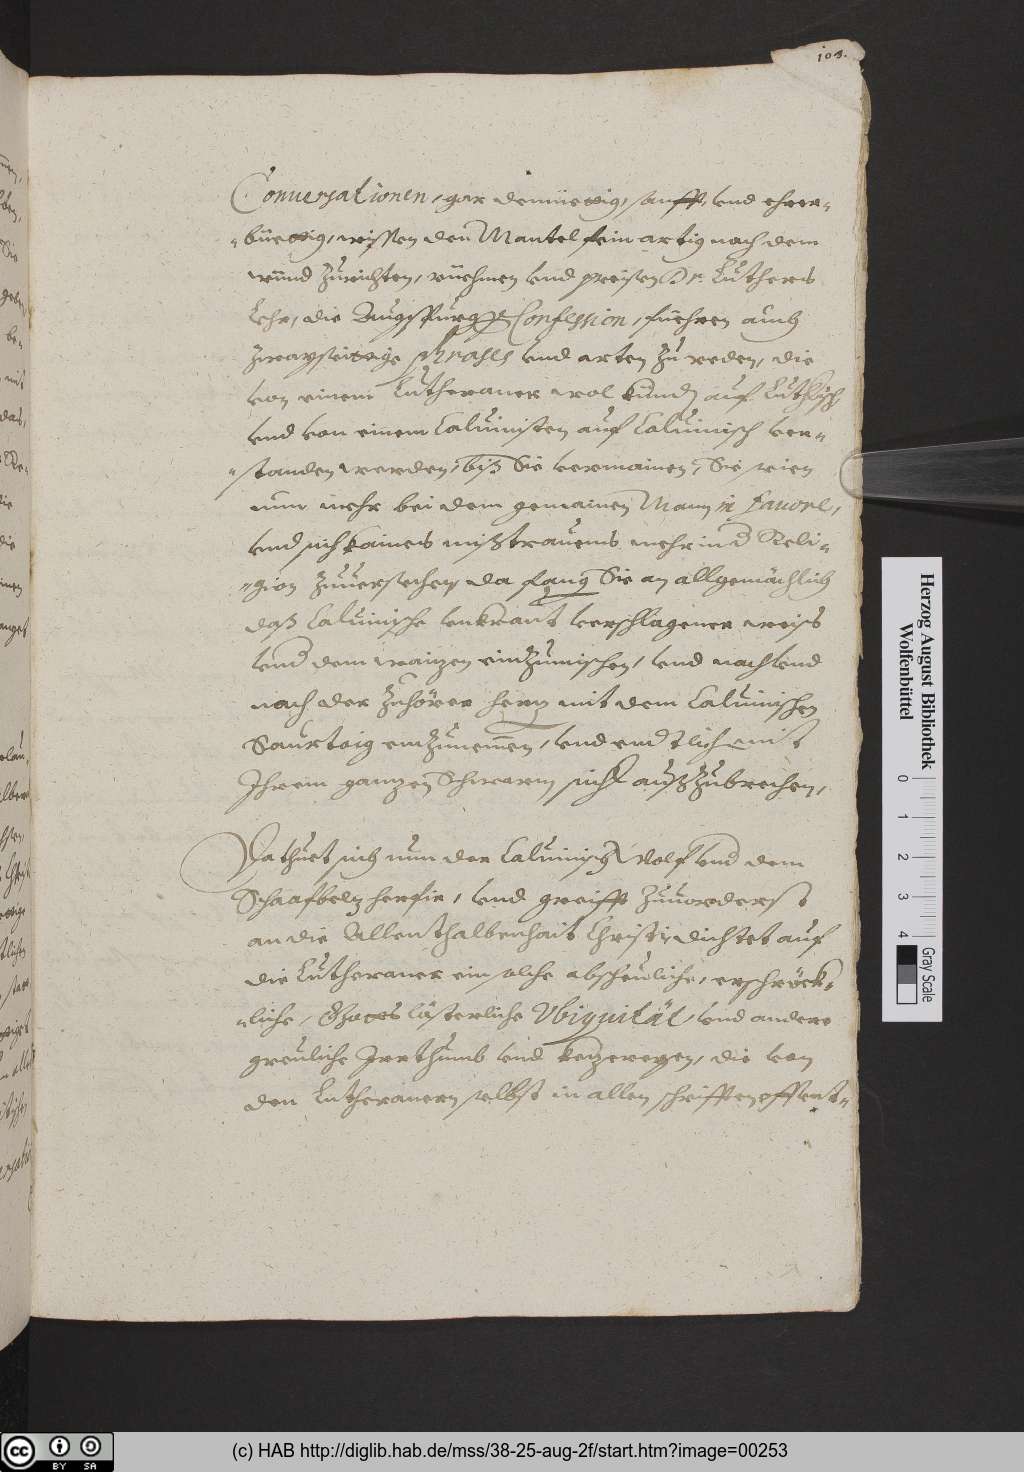 103.
Conuersationen, gar demüettig, sanfft, vnd ehrer-
-büettig, wissen den Mantel fein artig nach dem
wünd zurichten, rüehmen vnd preisen Dr. Luthers
Lehr, die Augspurgg Confession, füehren auch
zwayseittige phrases vnd arten zu reden, die
von einem Lutheraner wol kunden auf Luthrisch
vnd von einem Caluinisten auf Caluinisch ver-
-standen werden, biß Sie vermainen, Sie seien
nun mehr bei dem gemainen Mann in fauore,
vnd sich kaines mißtrauens mehr ind Reli-
-gion zuuersechen, da fang Sie an allgemächlich
daß Caluinische vnkraut verschlagener weiss
vnd dem waizen einzumischen, vnd nach vnd
nach der Zuhörer herz mit dem Caluinischen
Saurtaig einzunemen, vnd endtlich mit
Ihrem ganzen Schwarm sich außzubrechen,
Da thuet sich nun der Caluinisch Wolf vnd dem
Schaafbelz herfir, vnd greifft zuuorderst
an die Allenthalbenhait Christi, dichtet auf
die Lutheraner ein solche abscheuliche, erschröck-
-liche, Gottes lästerliche Vbiquität, vnd andere
greuliche Irrthumb vnd kezereyen, die von
den Lutheranern selbst in allen schrifften offent-
Herzog August Bibliothek
Wolfenbüttel
0 1 2 3 4
Gray Scale
cc BY SA
(c) HAB http://diglib.hab.de/mss/38-25-aug-2f/start.htm?image=00253